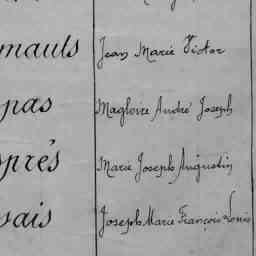 mauls Jean Marie Victor
pas Magloire André Joseph
près Marie Joseph Augustin
sais Joseph Marie François Louis